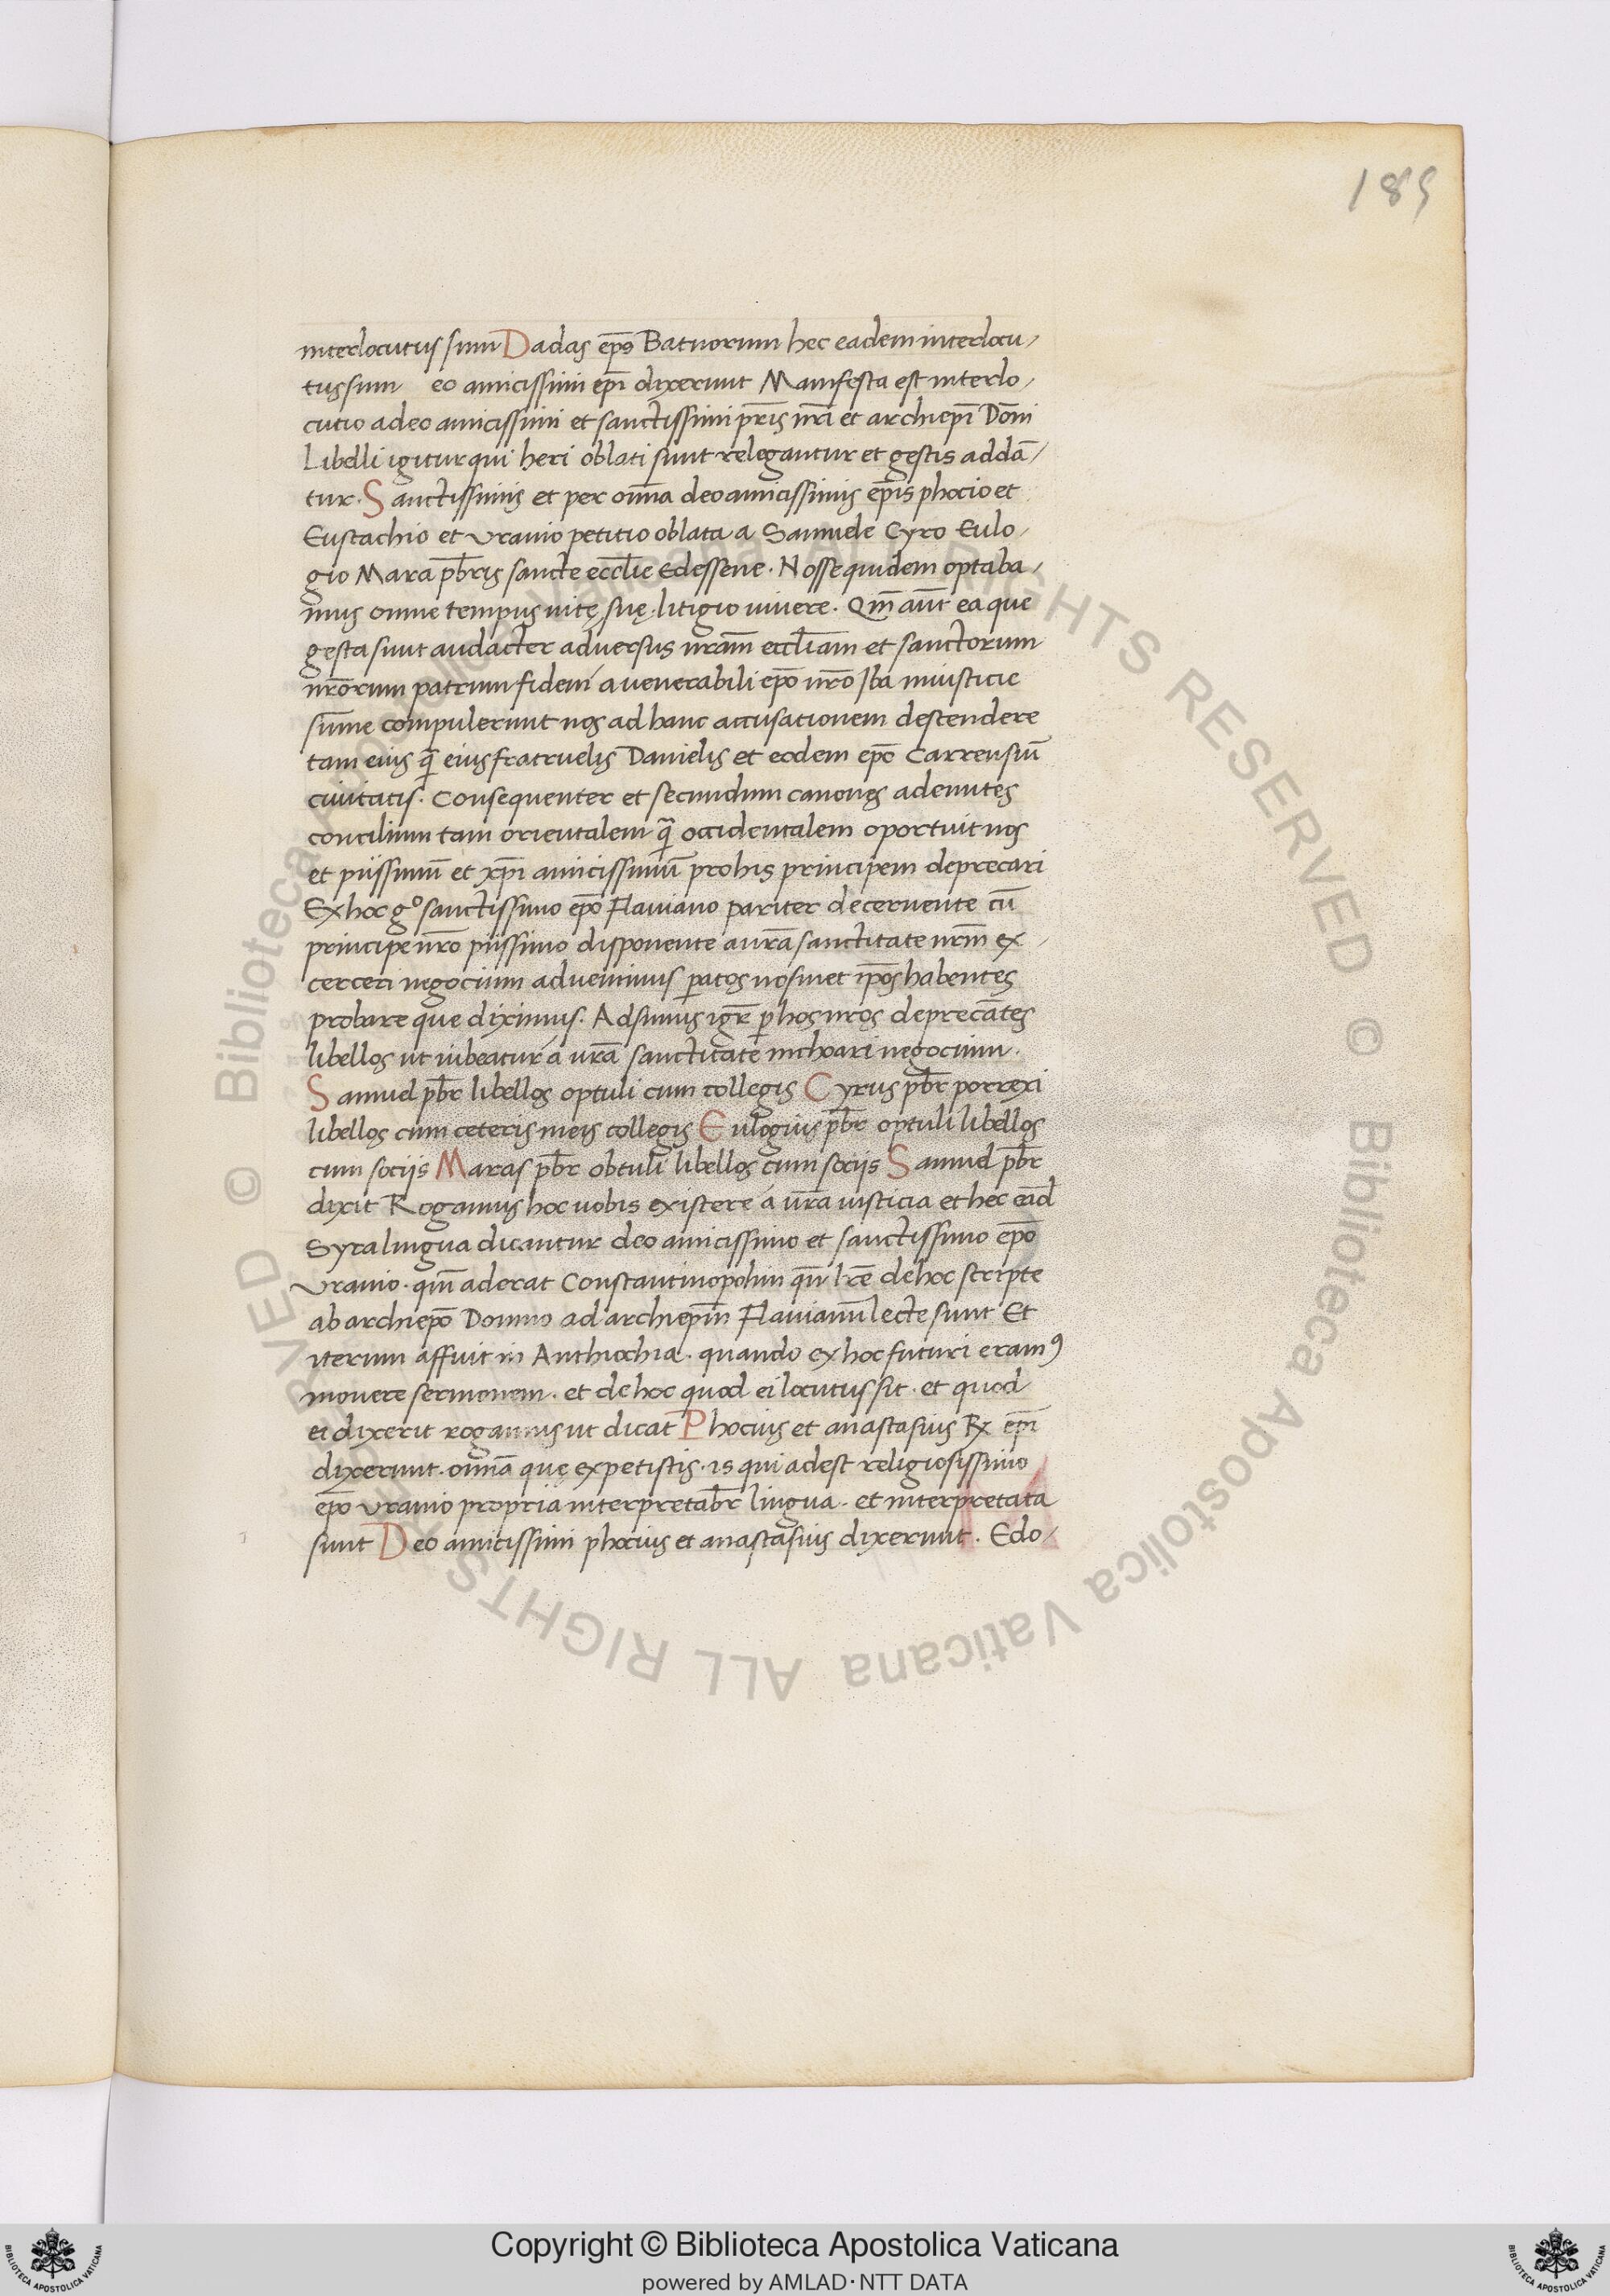 189
interlocutus sum Dadas ep̄s Batnorum hec eadem interlocu/
tus sum eo amicissimi ep̄i dixerunt Manifesta est interlo/
cutio a deo amicissimi et sanctissimi p̄ris nr̄i et archiep̄i Dōni
Libelli igitur qui heri oblati sunt relegantur et gestis addā/
tur. Sanctissimis et per om̄a deo amicissimis ep̄is phocio et
Eustachio et Uranio petitio oblata a Samuele Cyro Eulo/
gio Mara pb̄ris sancte eccl̄ie Edessene. Nosse quidem optaba/
mus omne tempus uitę suę. litigio uiuere. Qm̄ aūt ea que
gesta sunt audacter aduersus nr̄am eccl̄iam et sanctorum
nr̄orum patrum fidem á uenerabili ep̄o nr̄o Jba iniusticie
sūme compulerunt nos ad hanc accusationem descendere
tam eius q̄ eius fratruelis Danielis et eodem ep̄o Carrensiū
ciuitatis. Consequenter et secundum canones adeuntes
concilium tam orientalem q̄ occidentalem oportuit nos
et piissimū et xp̄i amicissimū pro his principem deprecari
Ex hoc g° sanctissimo ep̄o Flauiano pariter decernente cū
principe nr̄o piissimo disponente a ur̄a sanctitate nr̄m ex/
cerceri negocium aduenimus paratos nosmet ip̄os habentes
probare que diximus. Adsumus igr̄ p hos nr̄os deprecātes
libellos ut iubeatur á ur̄a sanctitate inchoari negocium.
Samuel pb̄r libellos optuli cum collegis Cyrus pb̄r porrexi
libellos cum ceteris meis collegis Eulogius pb̄r optuli libellos
cum sociis Maras pb̄r obtuli libellos cum sociis Samuel pb̄r
dixit Rogamus hoc nobis existere á ur̄a iusticia et hec ead̄
Syra lingua dicantur deo amicissimo et sanctissimo ep̄o
Uranio. qm̄ aderat Constantinopolim qn̄ lr̄e de hoc scripte
ab archiep̄o Domno ad archiep̄m Flauianū lecte sunt Et
iterum affuit in Anthiochia. quando ex hoc futuri eramꝰ
mouere sermonem. et de hoc quod ei locutus sit. et quod
ei dixerit rogamus ut dicat Phocius et anastasius Rx ep̄i
dixerunt. om̄ia quę expetistis. is qui adest religiosissimo
ep̄o Uranio propria interpretab̄r lingua. et interpretata
sunt Deo amicissimi phocius et anastasius dixerunt. Edo/
© Biblioteca Apostolica Vaticana ALL RIGHTS RESERVED © Biblioteca Apostolica Vaticana ALL RIGHTS RESERVED
Copyright © Biblioteca Apostolica Vaticana
powered by AMLAD·NTT DATA
BIBLIOTECA APOSTOLICA VATICANA
BIBLIOTECA APOSTOLICA VATICANA